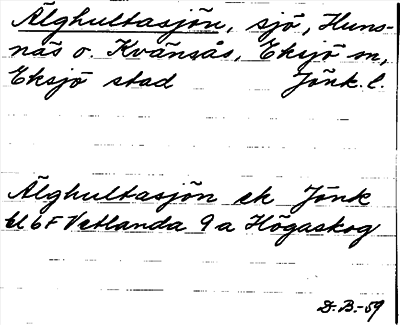 Älghultasjön, sjö, Huns-
näs o. Kvänsås, Eksjö sn,
Eksjö stad Jönk. l.
Älghultasjön ek Jönk
bl 6F Vetlanda 9 a Högaskog
D.B.-59